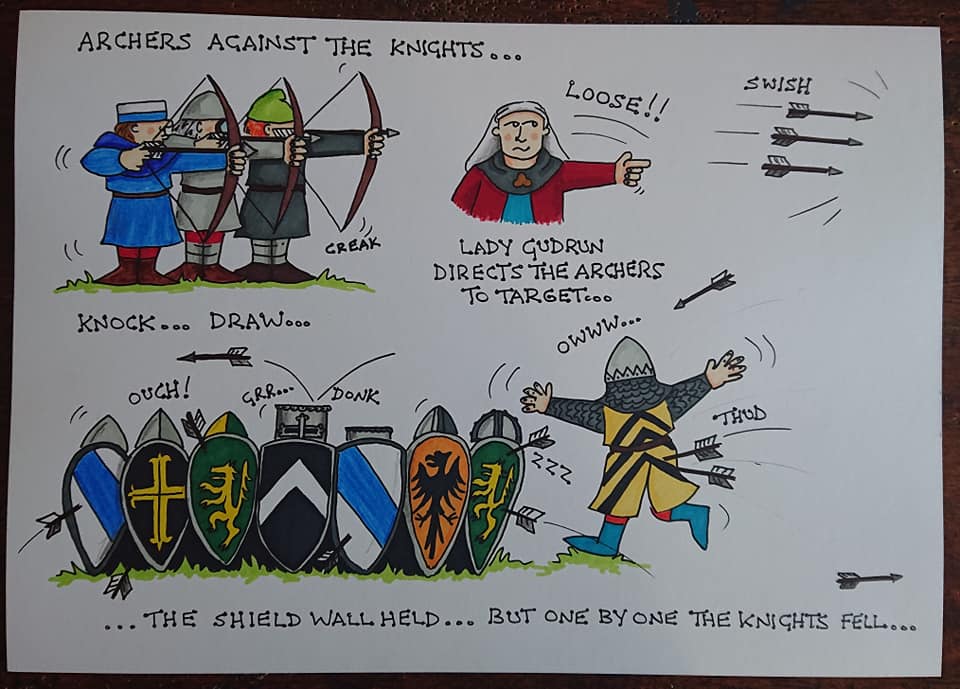 ARCHERS AGAINST THE KNIGHTS...
LOOSE!!
SWISH
CREAK
LADY GUDRUN
DIRECTS THE ARCHERS
TO TARGET...
KNOCK... DRAW...
OWWW...
OUCH!
GRR...
DONK
THUD
ZZZ
...THE SHIELD WALL HELD... BUT ONE BY ONE THE KNIGHTS FELL...